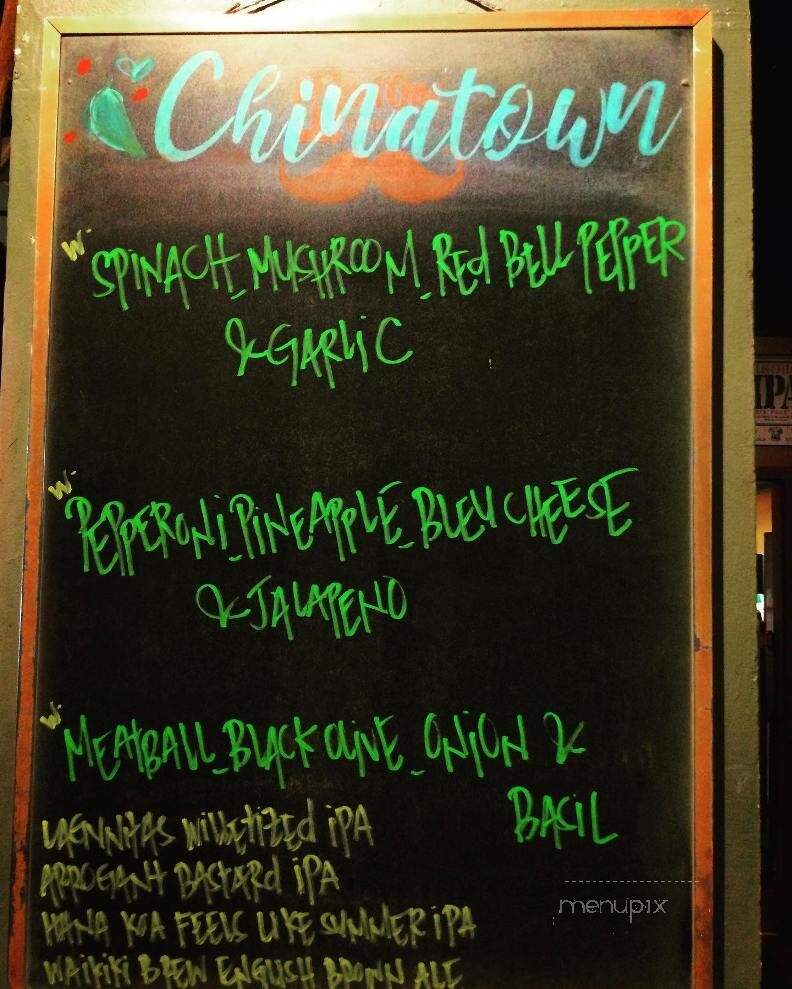 Chinatown
w. SPINACH_MUSHROOM_REd BELL PEPPER
& GARLIC
w. PEPPERONI_PINEAPPLE_BLEU CHEESE
& JALAPENO
w. MEATBALL_BLACK OLIVE_ONION &
BASIL
LAGNNITAS WillETiZEd iPA
ARROGANT BASTARd iPA
HANA KOA FEELS LIKE SUMMER iPA
WAIKIKI BREW ENGLISH BROWN ALE
menupix
IPA